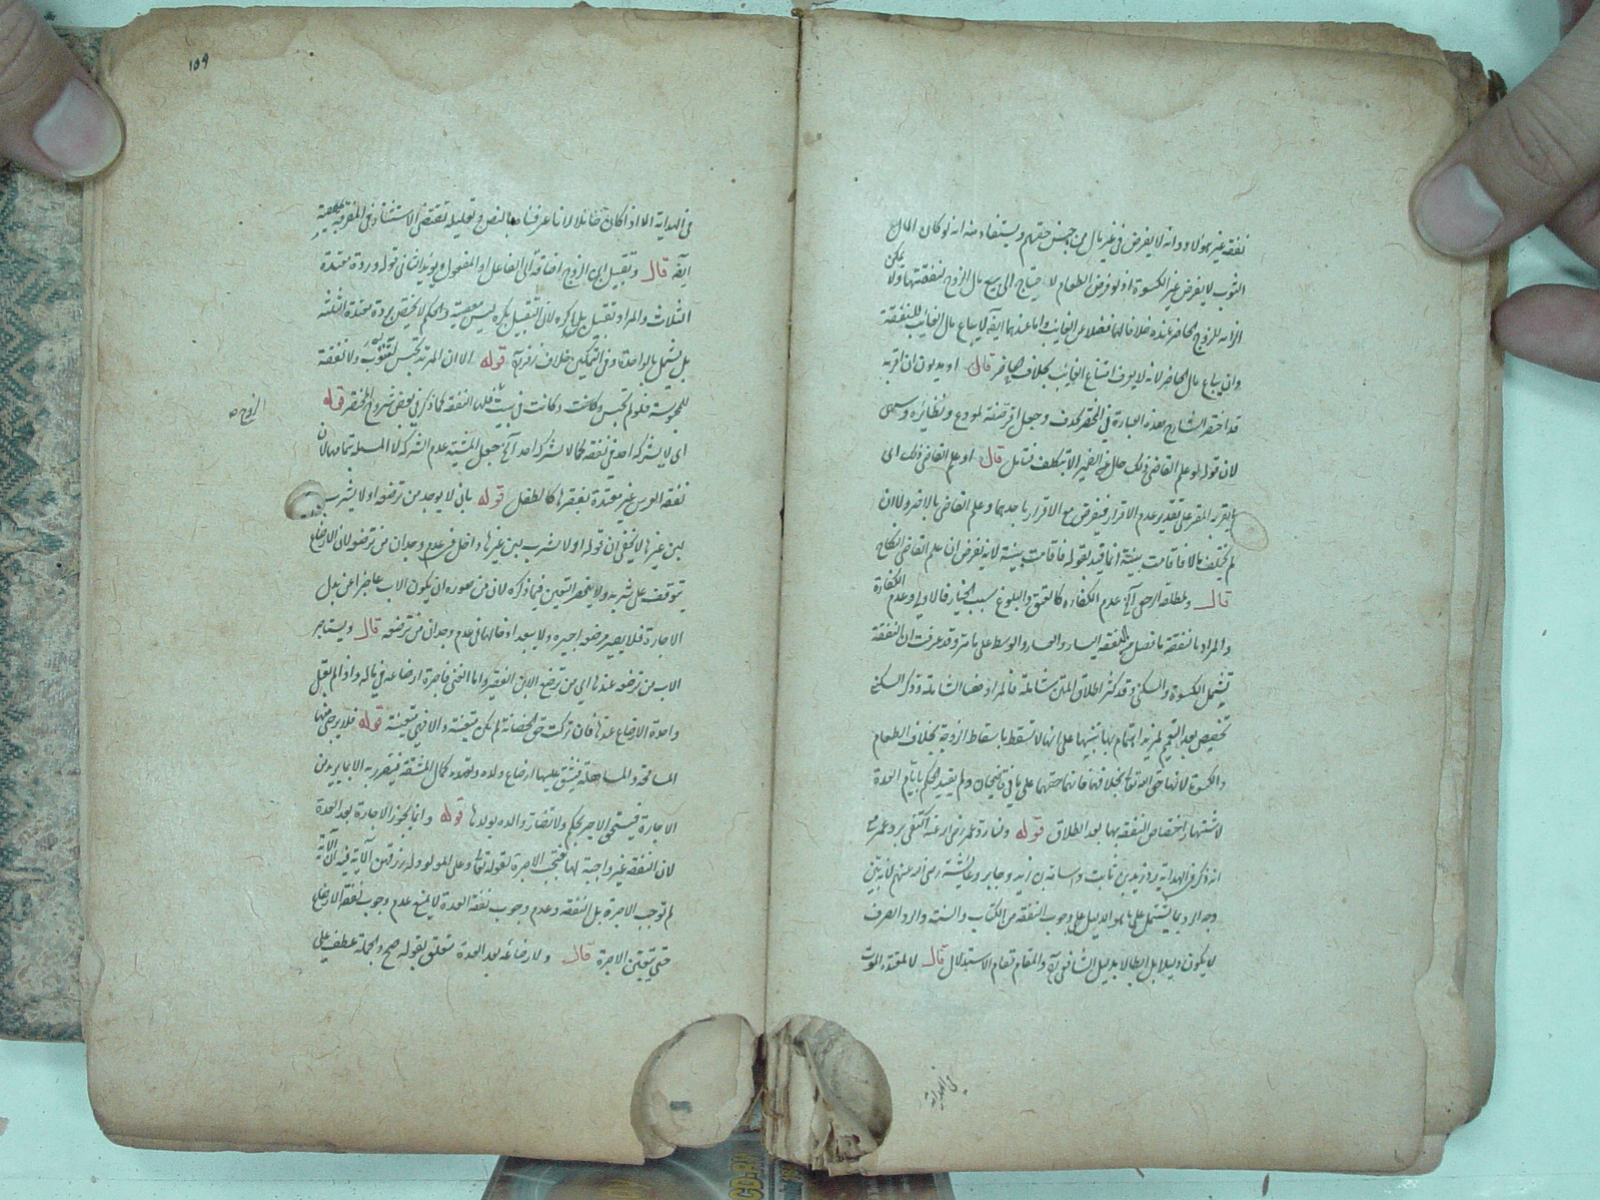 نفقة غير هؤلاء وانه لا يفرض في غير مال من جنس حقهم ويستفاد منه انه لو كان المال
الثوب لا يفرض غير الكسوة اذ لو فرض الطعام لاحتياج الى بيع مال الزوج لنفقتها ولا يمكن
الزامه للزوج الحاضر عنده خلافا لهما فضلا عن الغايب واما عندهما ايضا لا يباع مال الغايب للنفقة
وان يباع مال الحاضر لانه لا يعرف امتناع الغايب بخلاف الحاضر قال او مديون ان اقر به
قد اختصر الشارح هذه العبارة في المختصر بحذف وجعل اقر صفة لمودع ونظائره
لان قوله او علم القاضي ذلك خال عن الضمير الا بتكلف فتامل قال او علم القاضي ذلك اى
لم يحلف بها لا فاقامت بينة انما قيد بقوله فاقامت بينة لانه يفرض ان علم القاضي النكاح
قال ولمطلقة الرجعى اه عدم الكفاءة كالعتق والبلوغ سبب الخيار فالاولى وعدم الكفاءة
والمراد بالنفقة ما فصل من نفقة اليسار والعسار والوسط على ما مر وقد عرفت ان النفقة
تشمل الكسوة والسكنى وقد كثر اطلاق المتن شاملة فالمراد هنا الشاملة وذكر السكنى
تخصيص بعد التعميم لمزيد اهتمام بها تنبيها على انها لا تسقط باسقاط الزوجة بخلاف الطعام
والكسوة لانها حق الله تعالى بخلافهما فانهما حقهما على ما في ولم يقيد الحكم بايام العدة
لاشتهار اختصاص النفقة بها بعد الطلاق قوله ورده عمر رضى الله عنه اكتفى برد عمر مع
انه ذكر في الهداية رد زيد بن ثابت واسامة بن زيد وجابر وعايشة رضى الله عنهم لانه بين
وجه الرد بما يشتمل على ما هو الدليل على وجوب النفقة من الكتاب والسنة والرد الصرف
لا يكون دليلا بل ابطالا بدليل الشافعي رح والمقام مقام الاستدلال قال لا لمعتدة الموت
في الهداية
١٥٩
في الهداية الا اذا كان حائلا لانا عرفناه بالنص وتعليله يقتضى الاستثناء في المفرقة بمعصية
ايضا قال وتقبيل ابن الزوج اضافة الى الفاعل او المفعول ويؤيد الثاني قوله وردة معتدة
الثلاث والمراد تقبيل بلا كره لان التقبيل بكره ليس معصية والحكم لا يختص بردة معتدة الثلث
بل يشمل بالواحدة وفي التمكين خلاف زفر رح قوله الا ان المرتدة تحبس لتتوب ولا نفقة
للمحبوسة فلو لم تحبس وكانت في بيت فلها النفقة كما ذكر في بعض شروح المختصر قوله
الزوج صح
اى لا يشركه احد في نفقته كما لا يشركه احد اه جعل المشبه عدم الشركة لا المسئلة بتمامها لان
نفقة العرس غير مقيدة بفقرها كالطفل قوله بان لا يوجد من ترضعه او لا يشرب
لبن غيرها لا يخفى ان قوله او لا يشرب لبن غيرها داخل في عدم وجدان من ترضعه لان الارضاع
يتوقف على شربه ولا ينحصر التعين فيما ذكره لان من صوره ان يكون الاب عاجزا عن بدل
الاجارة فلا يصير مرضعه اجيره ولا يبعد ادخالها في عدم وجدان من ترضعه قال ويستاجر
الاب من ترضعه عندها اى من ترضع الابن الفقير واما الغنى فاجرة ارضاعه في ماله واذا لم يقبل
واحدة الارضاع عندها فان تركت حق الحضانة لم تكن متعينة والا فهي متعينة قوله فلا يرجى منها
المسامحة والمساهلة فيشق عليها ارضاع ولده وتعهده كمال المشقة فيتضرر به الاب بما يريد من
الاجارة فيستحق الاجر بحكم ولا تضار والدة بولدها قوله وانما يجوز الاجارة بعد العدة
لان النفقة غير واجبة لها فتجب الاجرة لقوله تعالى وعلى المولود له رزقهن الآية فيه ان الآية
لم توجب الاجرة بل النفقة وعدم وجوب نفقة العدة لا يمنع عدم وجوب نفقة الارضاع
حتى يتعين الاجرة قال ولارضاعه بعد العدة متعلق بقوله صح والجملة عطف على